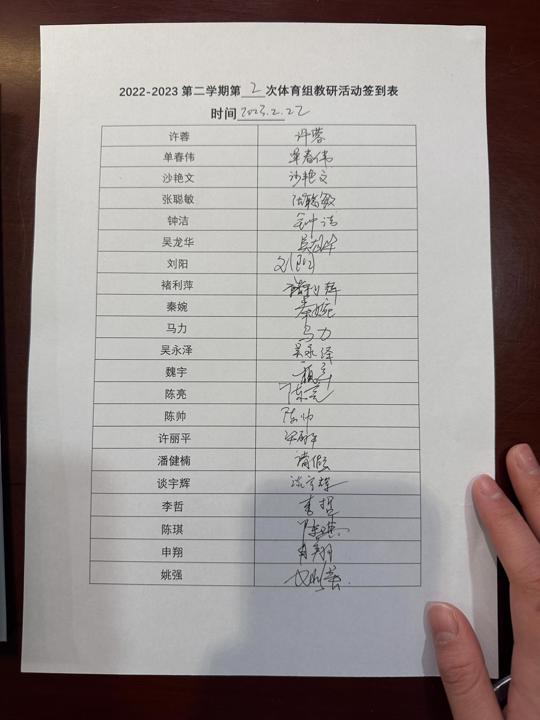 2022-2023 第二学期第 2 次体育组教研活动签到表
时间 2023.2.22
许蓉 许蓉
单春伟 单春伟
沙艳文 沙艳文
张聪敏 张聪敏
钟洁 钟洁
吴龙华 吴龙华
刘阳 刘阳
褚利萍 褚利萍
秦婉 秦婉
马力 马力
吴永泽 吴永泽
魏宇 魏宇
陈亮 陈亮
陈帅 陈帅
许丽平 许丽平
潘健楠 请假
谈宇辉 谈宇辉
李哲 李哲
陈琪 陈琪
申翔 申翔
姚强